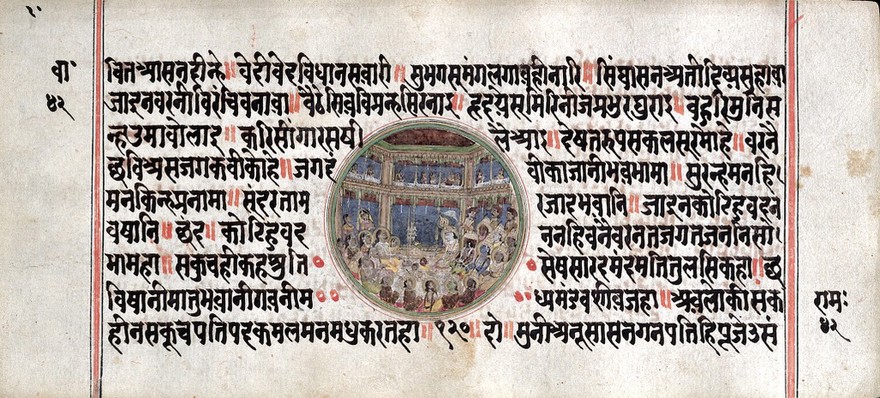 वा॰
४२
चितआसनदीन्हे॥ वेदीवेदविधानसवारी॥ सुभगसुमंगलगावहीनारि॥ सिंघासनअतीदिव्यसुहावा
जाइनवरनीविरंचिवनावा॥ वैठेसिवविप्रन्हसिरनाइ॥ हृदयसुमिरिनीजप्रभुरघुराइ॥ वहुरिमुनिस
न्हउमावोलाइ॥ करिसींगारसषी। लैआइ॥ देषतरुपसकलसुरमोहे॥ वरनै
छविअसजगकवीकोहे॥ जगदं वीकाजानीभवभामा॥ सुरन्हमनहि
मनकिन्हप्रनामा॥ सुंदरताम रजादभवानि॥ जाइनकोटिहुवदन
वषानि॥ छंद॥ कोटिहुवद ननहिवनैवरनतजगतजननिसो
भामहा॥ सकुचहीकहतश्रुति सेषसारदमंदमतितुलसिकहा॥ छ
विषानीमातुभवानीगवनीम ध्यमंडपशिवजहा॥ अवलोकीसक
हीनसकुचपतिपदकमलमनमधुकरतहा॥ १२०॥ दो॥ मुनीअनूसासनगनपतिहिपूजेउसं
रामः
४२